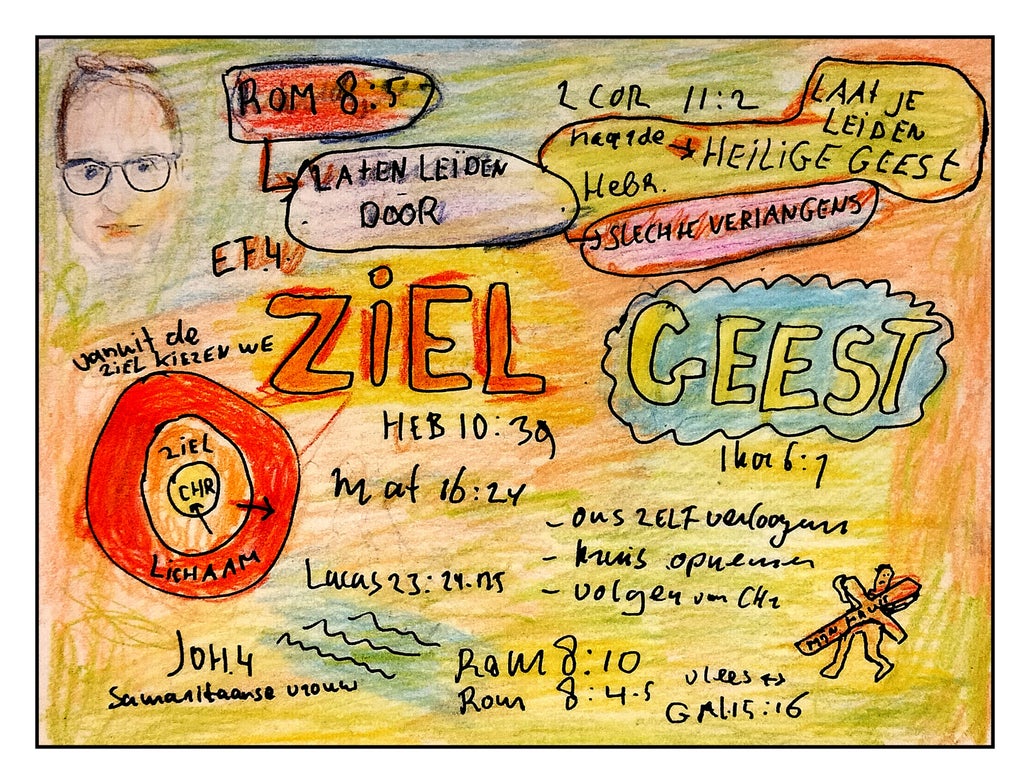 ROM 8:5
LATEN LEÏDEN
DOOR
2 COR 11:2
LAAT JE
LEIDEN
HEILIGE GEEST
HEBR.
SLECHTE VERLANGENS
EF.4.
ZiEL
GEEST
vanuit de
ZIEL KIEZEN WE
ZIEL
CHR
LICHAAM
HEB 10:39
Mat 16:24
- ons ZELF verloogenen
- kruis opnemen
- volgen van CHR
Lucas 23:24.
MIJN
JOH.4
Samaritaanse vrouw
Rom 8:10
Rom 8:4-5
vlees ↔
GAL.15:16